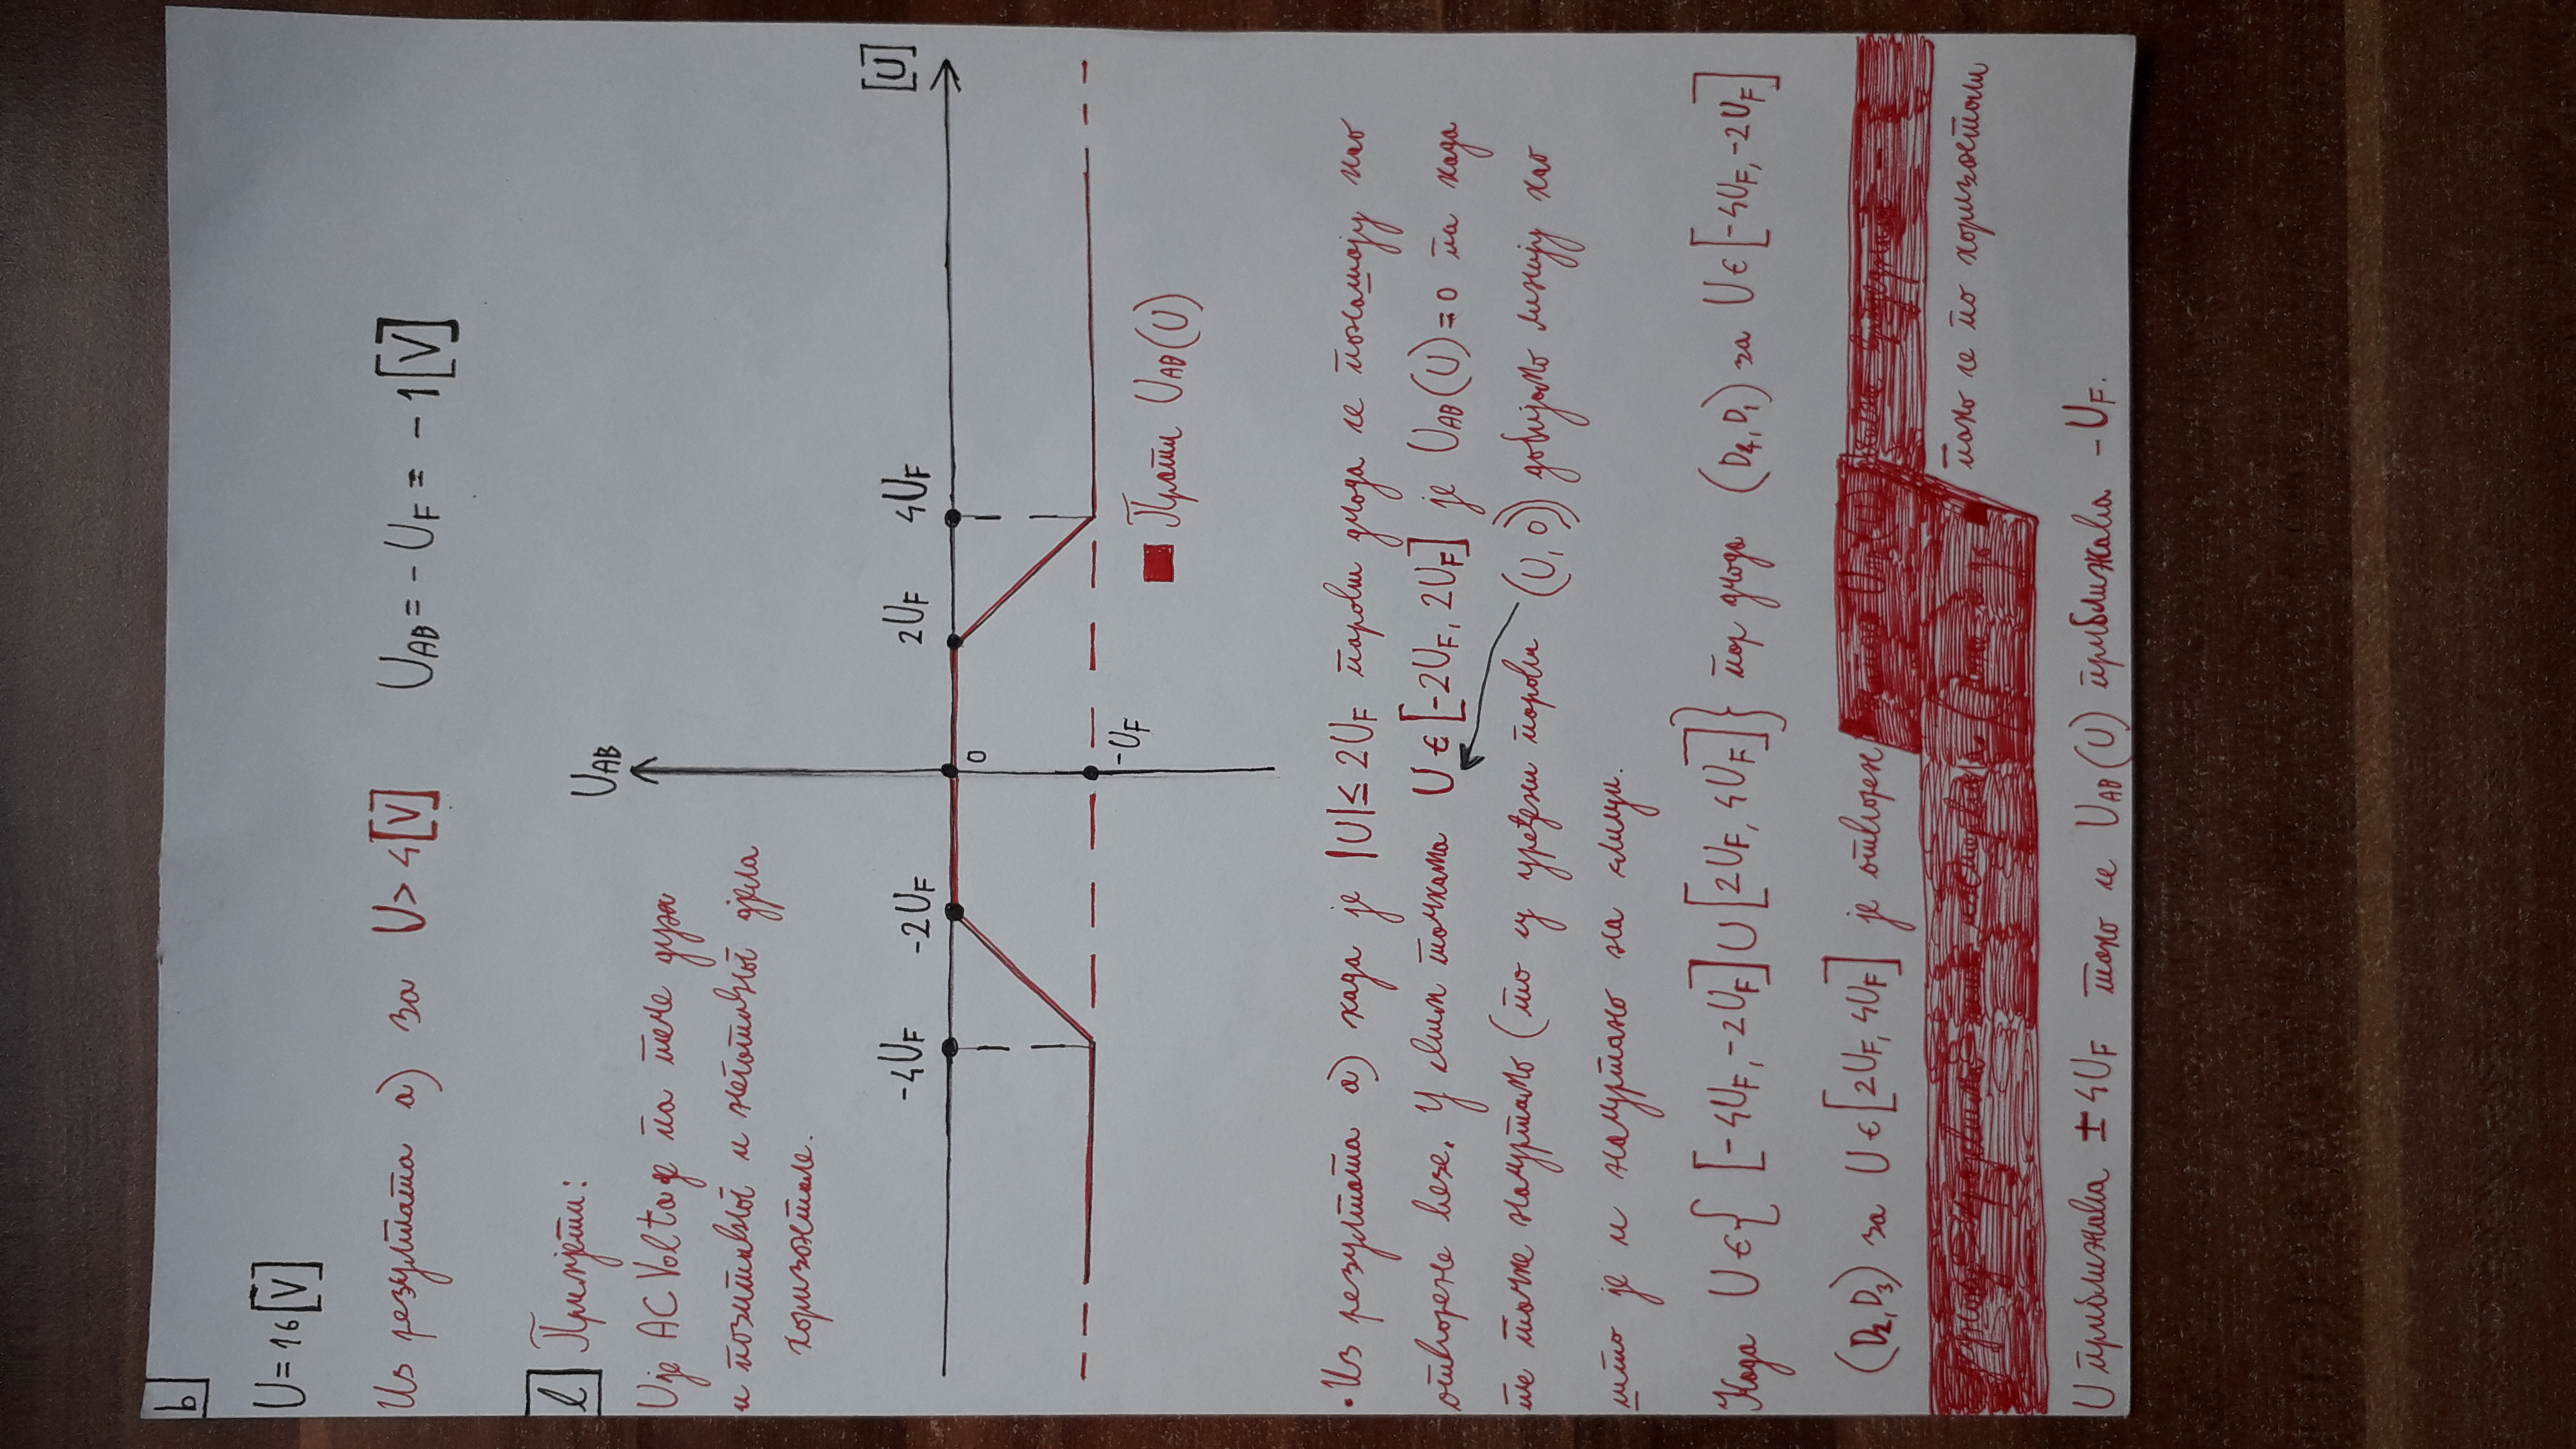 b
U = 16 [V]
Из резултата а) за U > 4 [V] U_AB = - U_F = - 1 [V]
c Примјети:
U је AC Voltage па тече дуж
и позитивног и негативног дјела
хоризонтале.
U_AB
-4U_F -2U_F 2U_F 4U_F [U]
0
-U_F
Прати U_AB(U)
• Из резултата а) када је |U| ≤ 2U_F парови диода се понашају као
отворене везе. У свим тачкама U ∈ [-2U_F, 2U_F] је U_AB(U) = 0 па када
те тачке нацртамо (то су уређени парови (U, 0)) добијамо линију као
што је и нацртано на слици.
Када U ∈ { [-4U_F, -2U_F] ∪ [2U_F, 4U_F] } пар диода (D4, D1) за U ∈ [-4U_F, -2U_F]
(D2, D3) за U ∈ [2U_F, 4U_F] је отворен
како се по хоризонтали
U приближава ± 4U_F тако се U_AB(U) приближава - U_F.